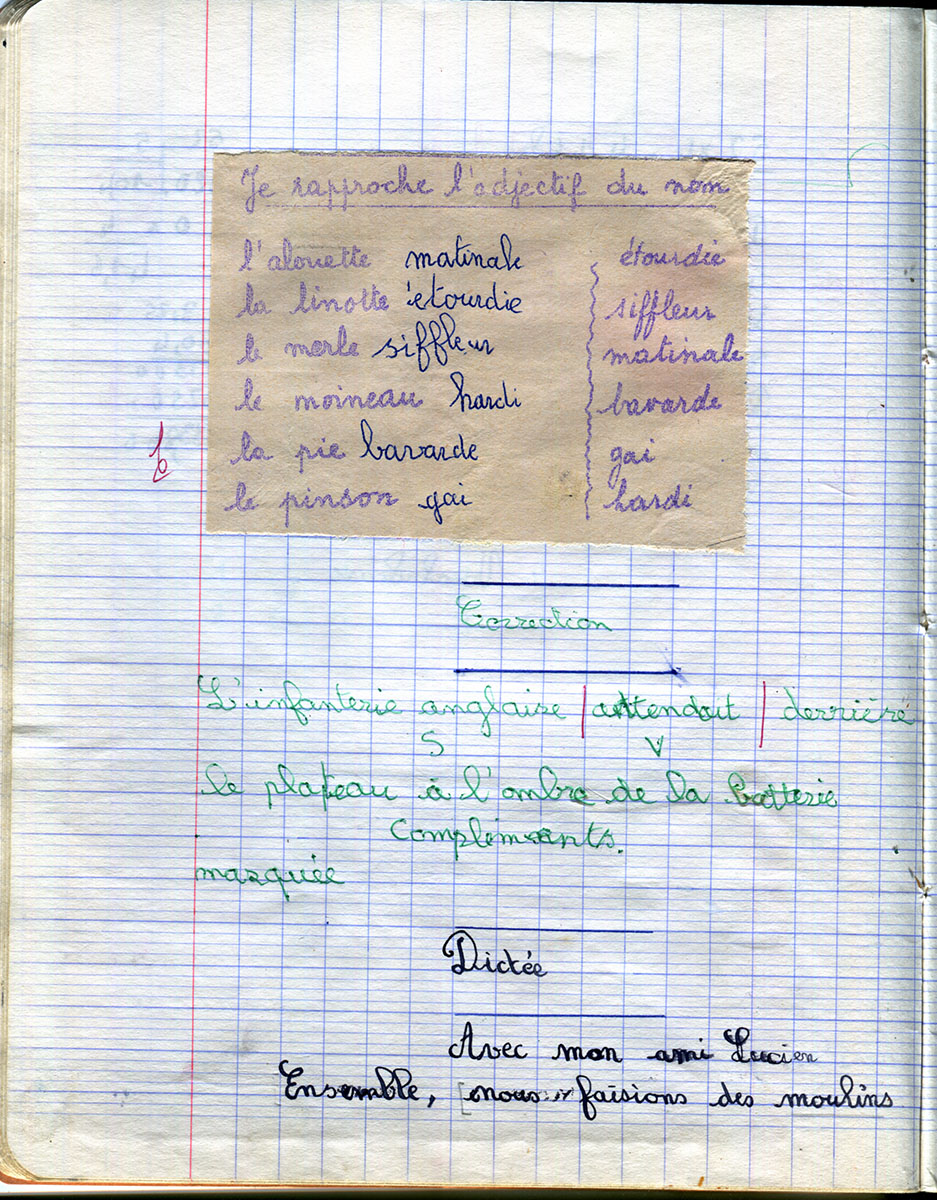 Je rapproche l'adjectif du nom
l'alouette matinale étourdie
la linotte étourdie siffleur
le merle siffleur matinale
le moineau hardi bavarde
la pie bavarde gai
le pinson gai hardi
Correction
L'infanterie anglaise | attendait | derrière
S V
le plateau à l'ombre de la batterie
Compléments.
masquée
Dictée
Avec mon ami Lucien
Ensemble, [nous faisions des moulins